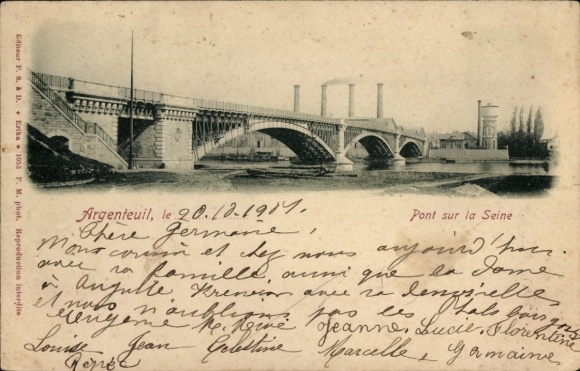 Editeur P. S. à D. ✦ Erika ✦ 1055 P. M. phot. Reproduction interdite
Argenteuil, le 20.10.1901.
Pont sur la Seine
Ma Chère Germaine,
Mon cousin et chez nous aujourd'hui
avec sa famille ainsi que la dame
à avec sa demoiselle
et nous n'oublions pas les
Eugène M. Jeanne, Lucie, Florentine
Louise Jean Celestine Marcelle, Germaine,